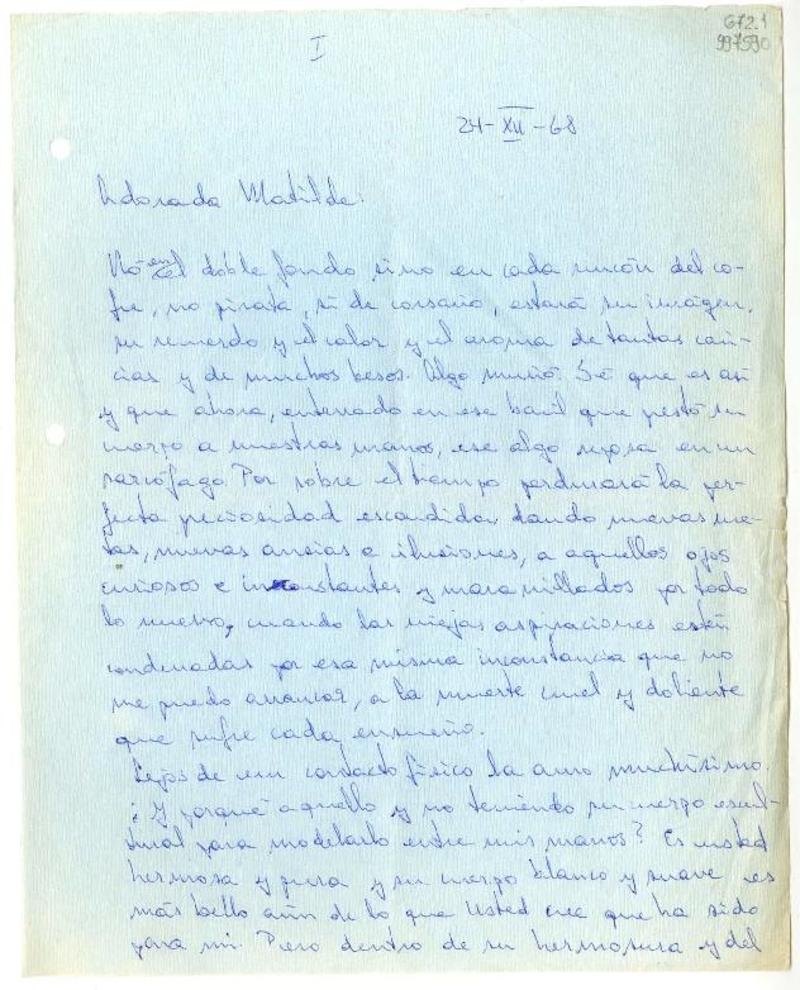 672.1
997590
I
24-XII-68
Adorada Matilde:
No en el doble fondo sino en cada rincón del co-
fre, no pirata, si de corsario, estará su imágen,
su recuerdo y el calor y el aroma de tantas cari-
cias y de muchos besos. Algo murió. Sé que es así
y que ahora, enterrado en ese baul que prestó su
cuerpo a nuestras manos, ese algo reposa en un
sarcófago. Por sobre el tiempo perdurará la per-
fecta preciosidad escondida, dando nuevas me-
tas, nuevas ansias e ilusiones, a aquellos ojos
curiosos e inconstantes y maravillados por todo
lo nuevo, cuando las viejas aspiraciones estén
condenadas por esa misma inconstancia que no
me puedo arrancar, a la muerte cruel y doliente
que sufre cada ensueño.
Lejos de un contacto físico la amo muchísimo.
¿Y porqué aquello y no teniendo su cuerpo escul-
tural para modelarlo entre mis manos? Es usted
hermosa y pura y su cuerpo blanco y suave es
más bello aún de lo que Usted cree que ha sido
para mi. Pero dentro de su hermosura y del